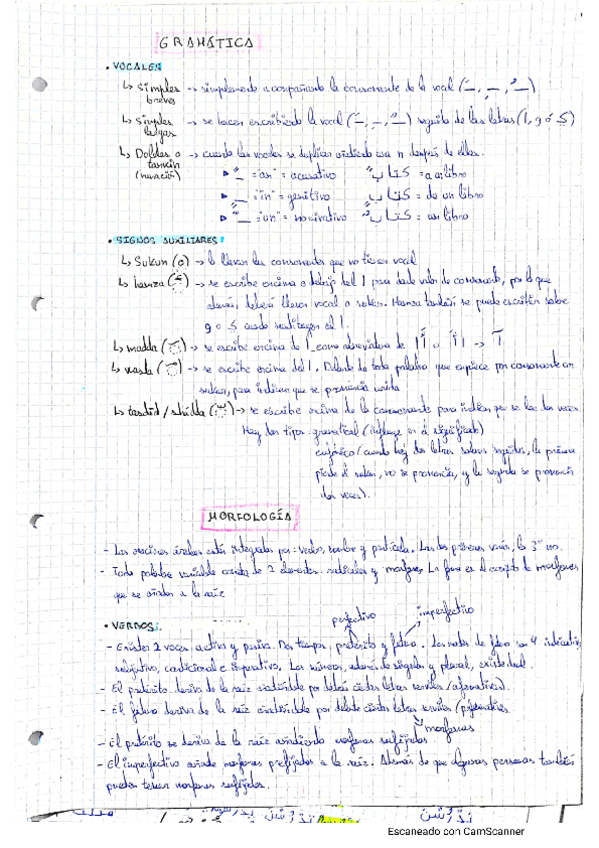 GRAMÁTICA
• VOCALES
↳ simples breves → simplemente acompañando la consonante de la vocal (َ , ِ , ُ )
↳ simples largas → se hacen escribiendo la vocal (َ , ِ , ُ ) seguito de las letras (ا, و ó ي)
↳ Dobles o tanwin (nunación) → cuando las vocales se duplican añadiendo una n después de ellas.
▸ ً = "an" = acusativo كتاب = a un libro
▸ ٍ = "in" = genitivo كتابٍ = de un libro
▸ ٌ = "un" = nominativo كتابٌ = un libro
• SIGNOS AUXILIARES:
↳ Sukun (o) → lo llevan las consonantes que no tienen vocal
↳ hamza (ء) → se escribe encima o debajo del ا para darle valor de consonante, por lo que
además, deberá llevar vocal o sukun. Hamza también se puede escribir sobre
و o ي cuando sustituyen al ا.
↳ madda (~) → se escribe encima de ا como abreviatura de → آ
↳ wasla → se escribe encima del ا. Delante de toda palabra que empiece por consonante con
sukun, para indicar que se pronuncia unida
↳ tasdid / shidda (ّ) → se escribe encima de la consonante para indicar que se lee dos veces
Hay dos tipos: gramatical (influye en el significado)
eufónico (cuando hay dos letras solares seguidas, la primera
pierde el sukun, no se pronuncia, y la segunda se pronuncia
dos veces).
MORFOLOGÍA
- Las oraciones árabes están integradas por: verbo, nombre y partícula. Las dos primeras varían, la 3ª no.
- Toda palabra variable consta de 2 elementos: radicales y morfemas. La forma es el concepto de morfemas
que se añaden a la raíz
perfectivo imperfectivo
• VERBOS:
- Existen 2 voces: activa y pasiva. Dos tiempos, pretérito y futuro. Los modos de futuro son 4: indicativo,
subjuntivo, condicional e imperativo. Los números, además de singular y plural, existe dual.
- El pretérito deriva de la raíz añadiéndole por detrás ciertas letras serviles (aformativas).
- El futuro deriva de la raíz añadiéndole por delante ciertas letras serviles (preformativas
↳ morfemas
- El pretérito se deriva de la raíz añadiendo morfemas sufijados.
- El imperfectivo añade morfemas prefijados a la raíz. Además de que algunas personas también
pueden tener morfemas sufijados.
Escaneado con CamScanner